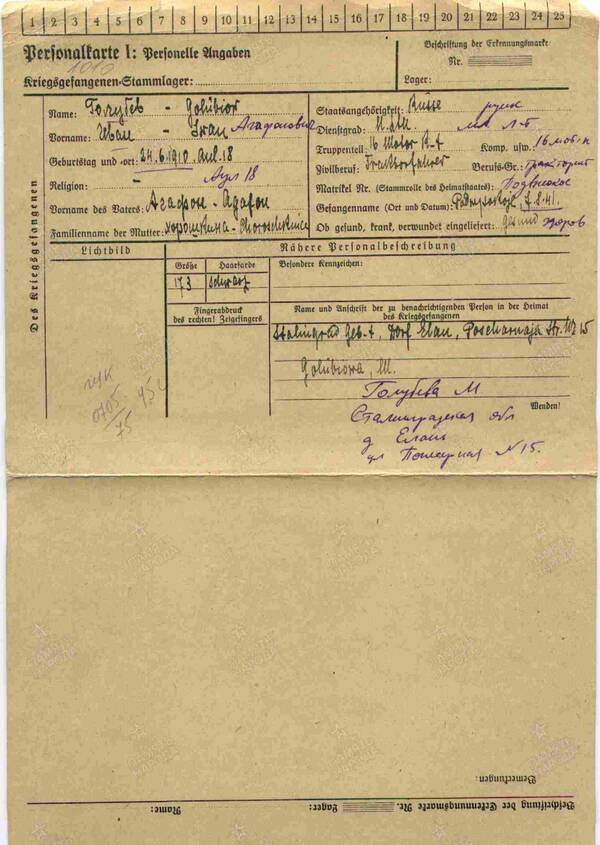 1 2 3 4 5 6 7 8 9 10 11 12 13 14 15 16 17 18 19 20 21 22 23 24 25
Personalkarte I: Personelle Angaben
Kriegsgefangenen-Stammlager:
Beschriftung der Erkennungsmarke
Nr.
Lager:
Des Kriegsgefangenen
Name: Голубев - Golubiow
Vorname: Иван - Iwan Агафонович
Geburtstag und -ort: 24.6.1910. Aul. 18
Аул 18
Religion: -
Vorname des Vaters: Агафон - Agafon
Familienname der Mutter:
Staatsangehörigkeit: Russe русск
Dienstgrad:
Truppenteil: 16 Motor Komp. usw. 16 мот
Zivilberuf: Traktorfahrer Berufs-Gr.: тракторист
Matrikel Nr. (Stammrolle des Heimatstaates):
Gefangenname (Ort und Datum): 7.8.41.
Ob gesund, krank, verwundet eingeliefert: gesund здоров
Lichtbild
Nähere Personalbeschreibung
Größe
Haarfarbe
Besondere Kennzeichen:
173
schwarz
Fingerabdruck
des rechten! Zeigefingers
Name und Anschrift der zu benachrichtigenden Person in der Heimat
des Kriegsgefangenen
Stalingrad Geb-t, Dorf Elan, Poscharnaja Str. 15
Golubiowa, M.
Голубева М
Wenden!
Сталинградская обл
д Елань
ул Пожарная N 15.
0705
75
Bemerkungen:
Beschriftung der Erkennungsmarke Nr. Lager: Name: